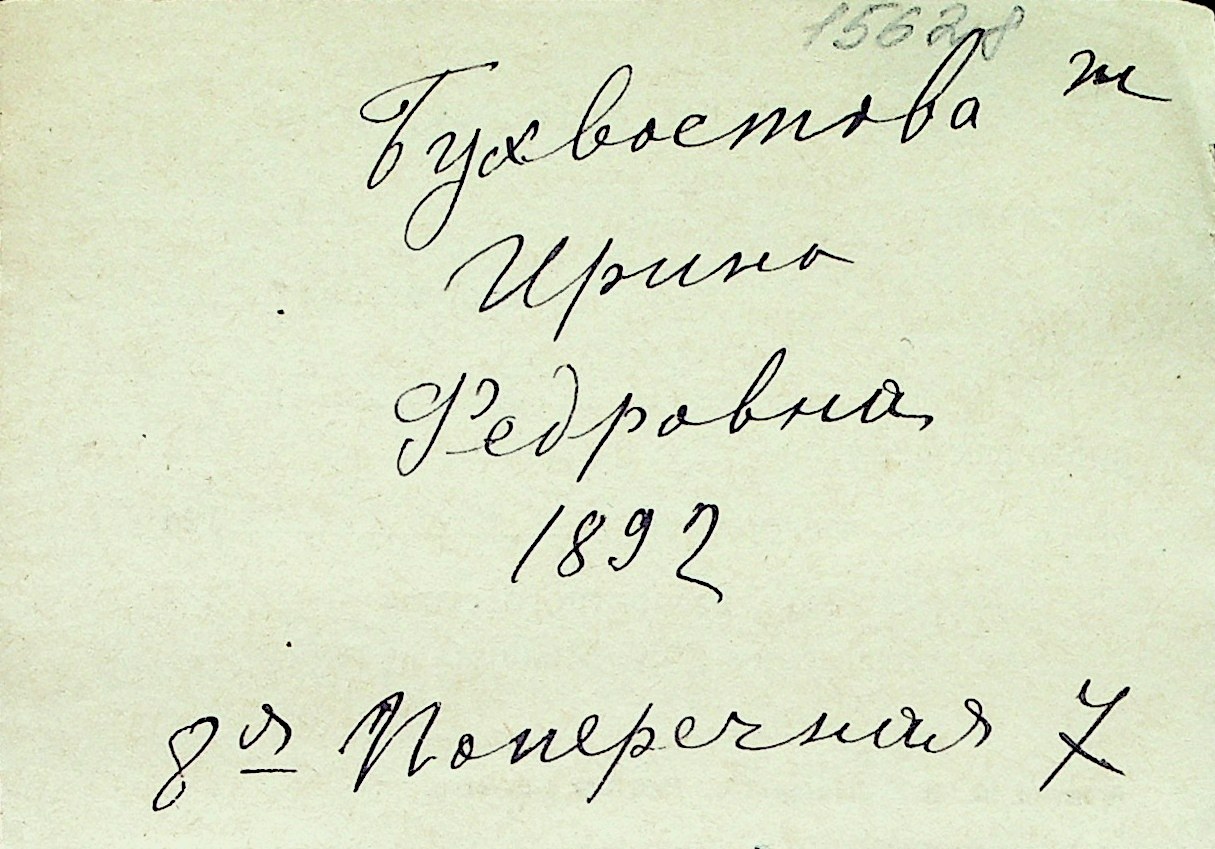 15628
Бухвостова т
Ирина
Федровна
1892
8 ая Поперечная 7